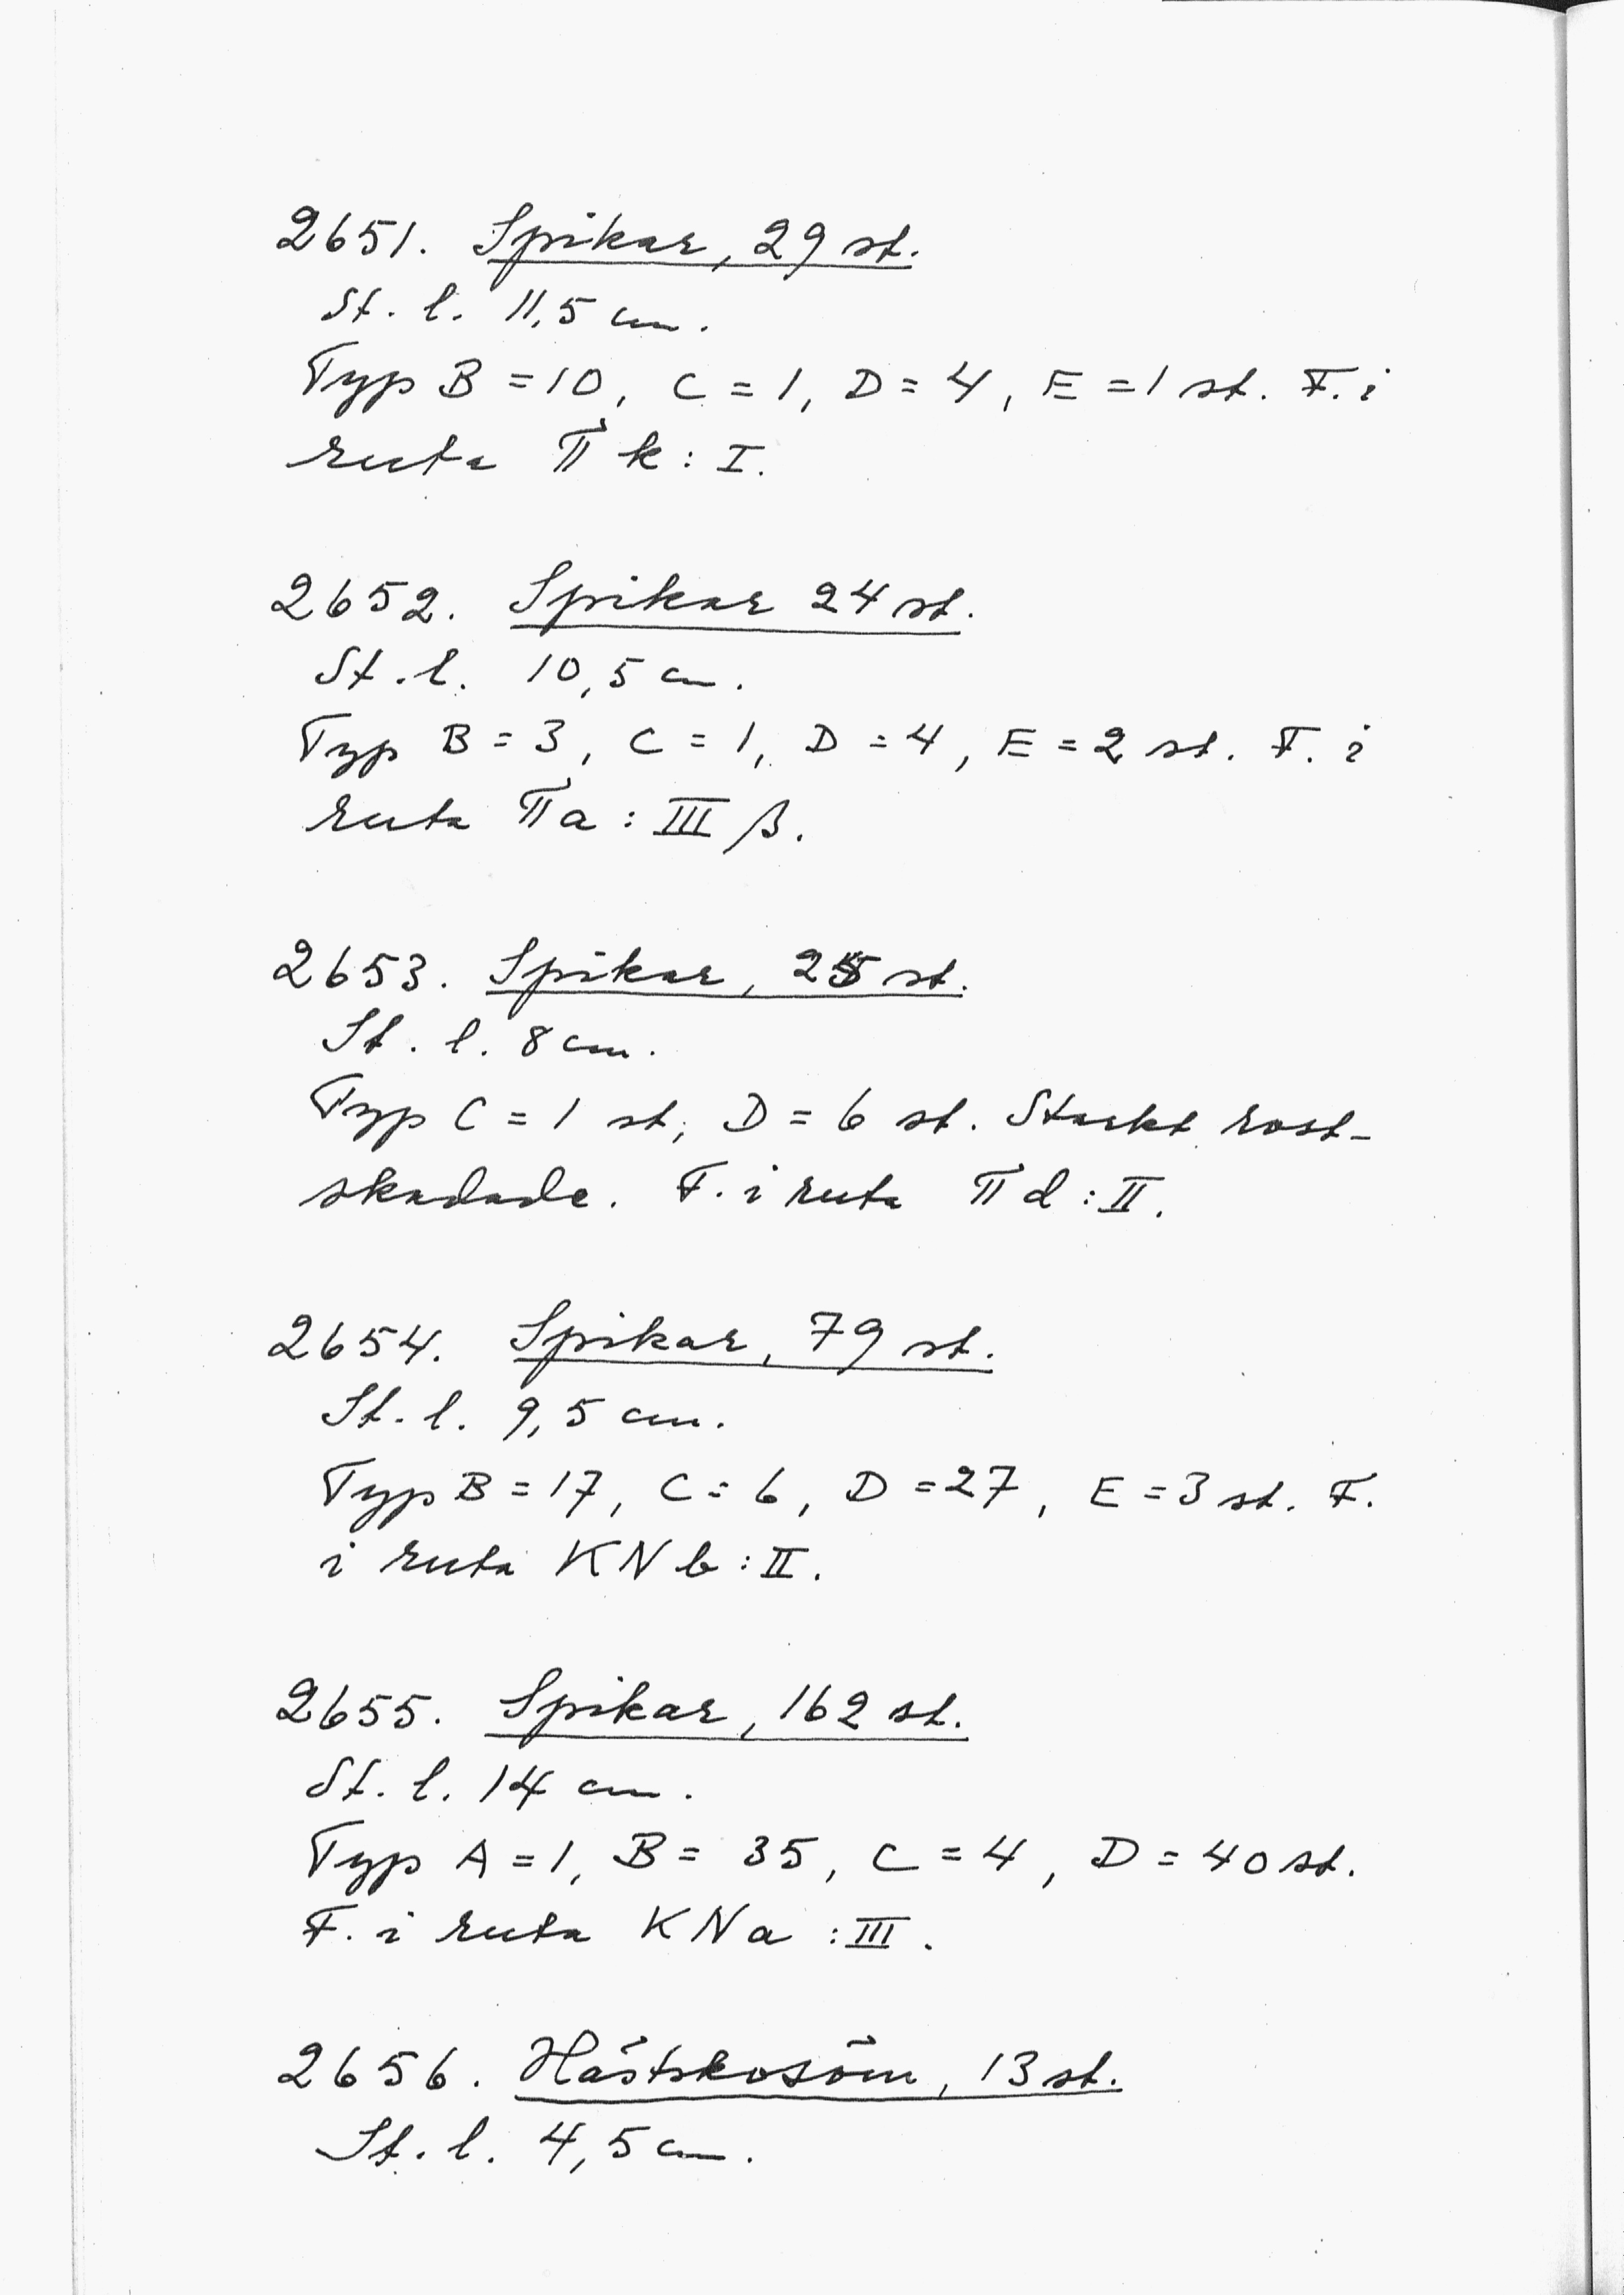 2651. Spikar, 29 st.
St. l. 11,5 cm.
Typ B = 10, C = 1, D = 4, E = 1 st. F. i
ruta Π k : I.
2652. Spikar 24 st.
St. l. 10,5 cm.
Typ B = 3, C = 1, D = 4, E = 2 st. F. i
ruta Π a : III β.
2653. Spikar, 25 st.
St. l. 8 cm.
Typ C = 1 st, D = 6 st. Starkt rost-
skadade. F. i ruta Π d : II.
2654. Spikar, 79 st.
St. l. 9,5 cm.
Typ B = 17, C = 6, D = 27, E = 3 st. F.
i ruta KN b : II.
2655. Spikar, 162 st.
St. l. 14 cm.
Typ A = 1, B = 35, C = 4, D = 40 st.
F. i ruta KNa : III.
2656. Hästskosöm, 13 st.
St. l. 4,5 cm.